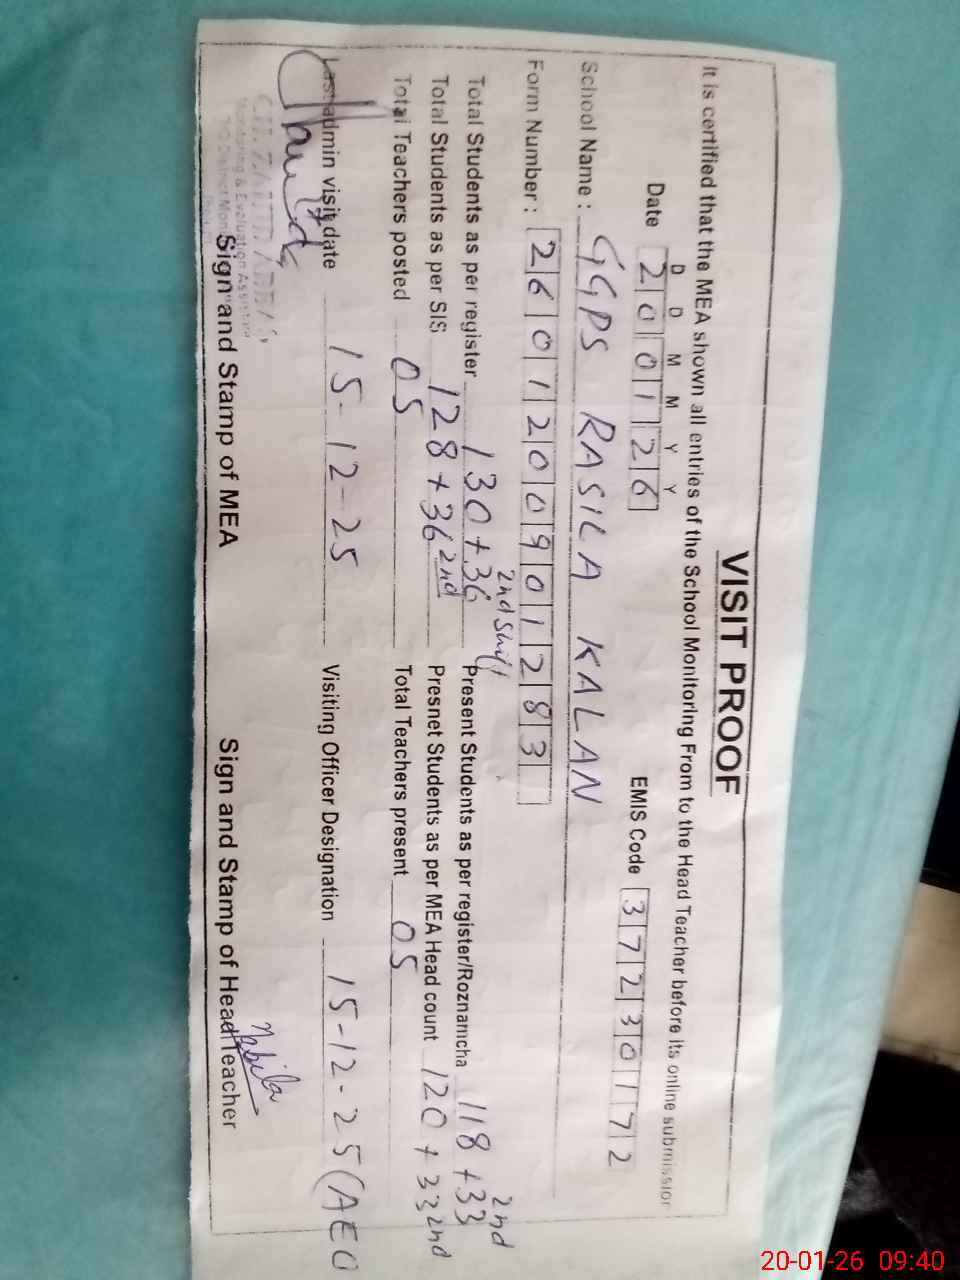 VISIT PROOF
It is certified that the MEA shown all entries of the School Monitoring From to the Head Teacher before its online submission
D D M M Y Y
Date 200126 EMIS Code 37230172
School Name : GGPS RASILA KALAN
Form Number : 2601200901283
2nd shift 2nd
Total Students as per register 130+36 Present Students as per register/Roznamcha 118+33
Total Students as per SIS 128+36 2nd Presnet Students as per MEA Head count 120+33 2nd
Total Teachers posted 05 Total Teachers present 05
Last admin visit date 15-12-25 Visiting Officer Designation 15-12-25 (AEO
Monitoring & Evaluation Assistant
Nabila
Sign and Stamp of MEA Sign and Stamp of Head Teacher
20-01-26 09:40